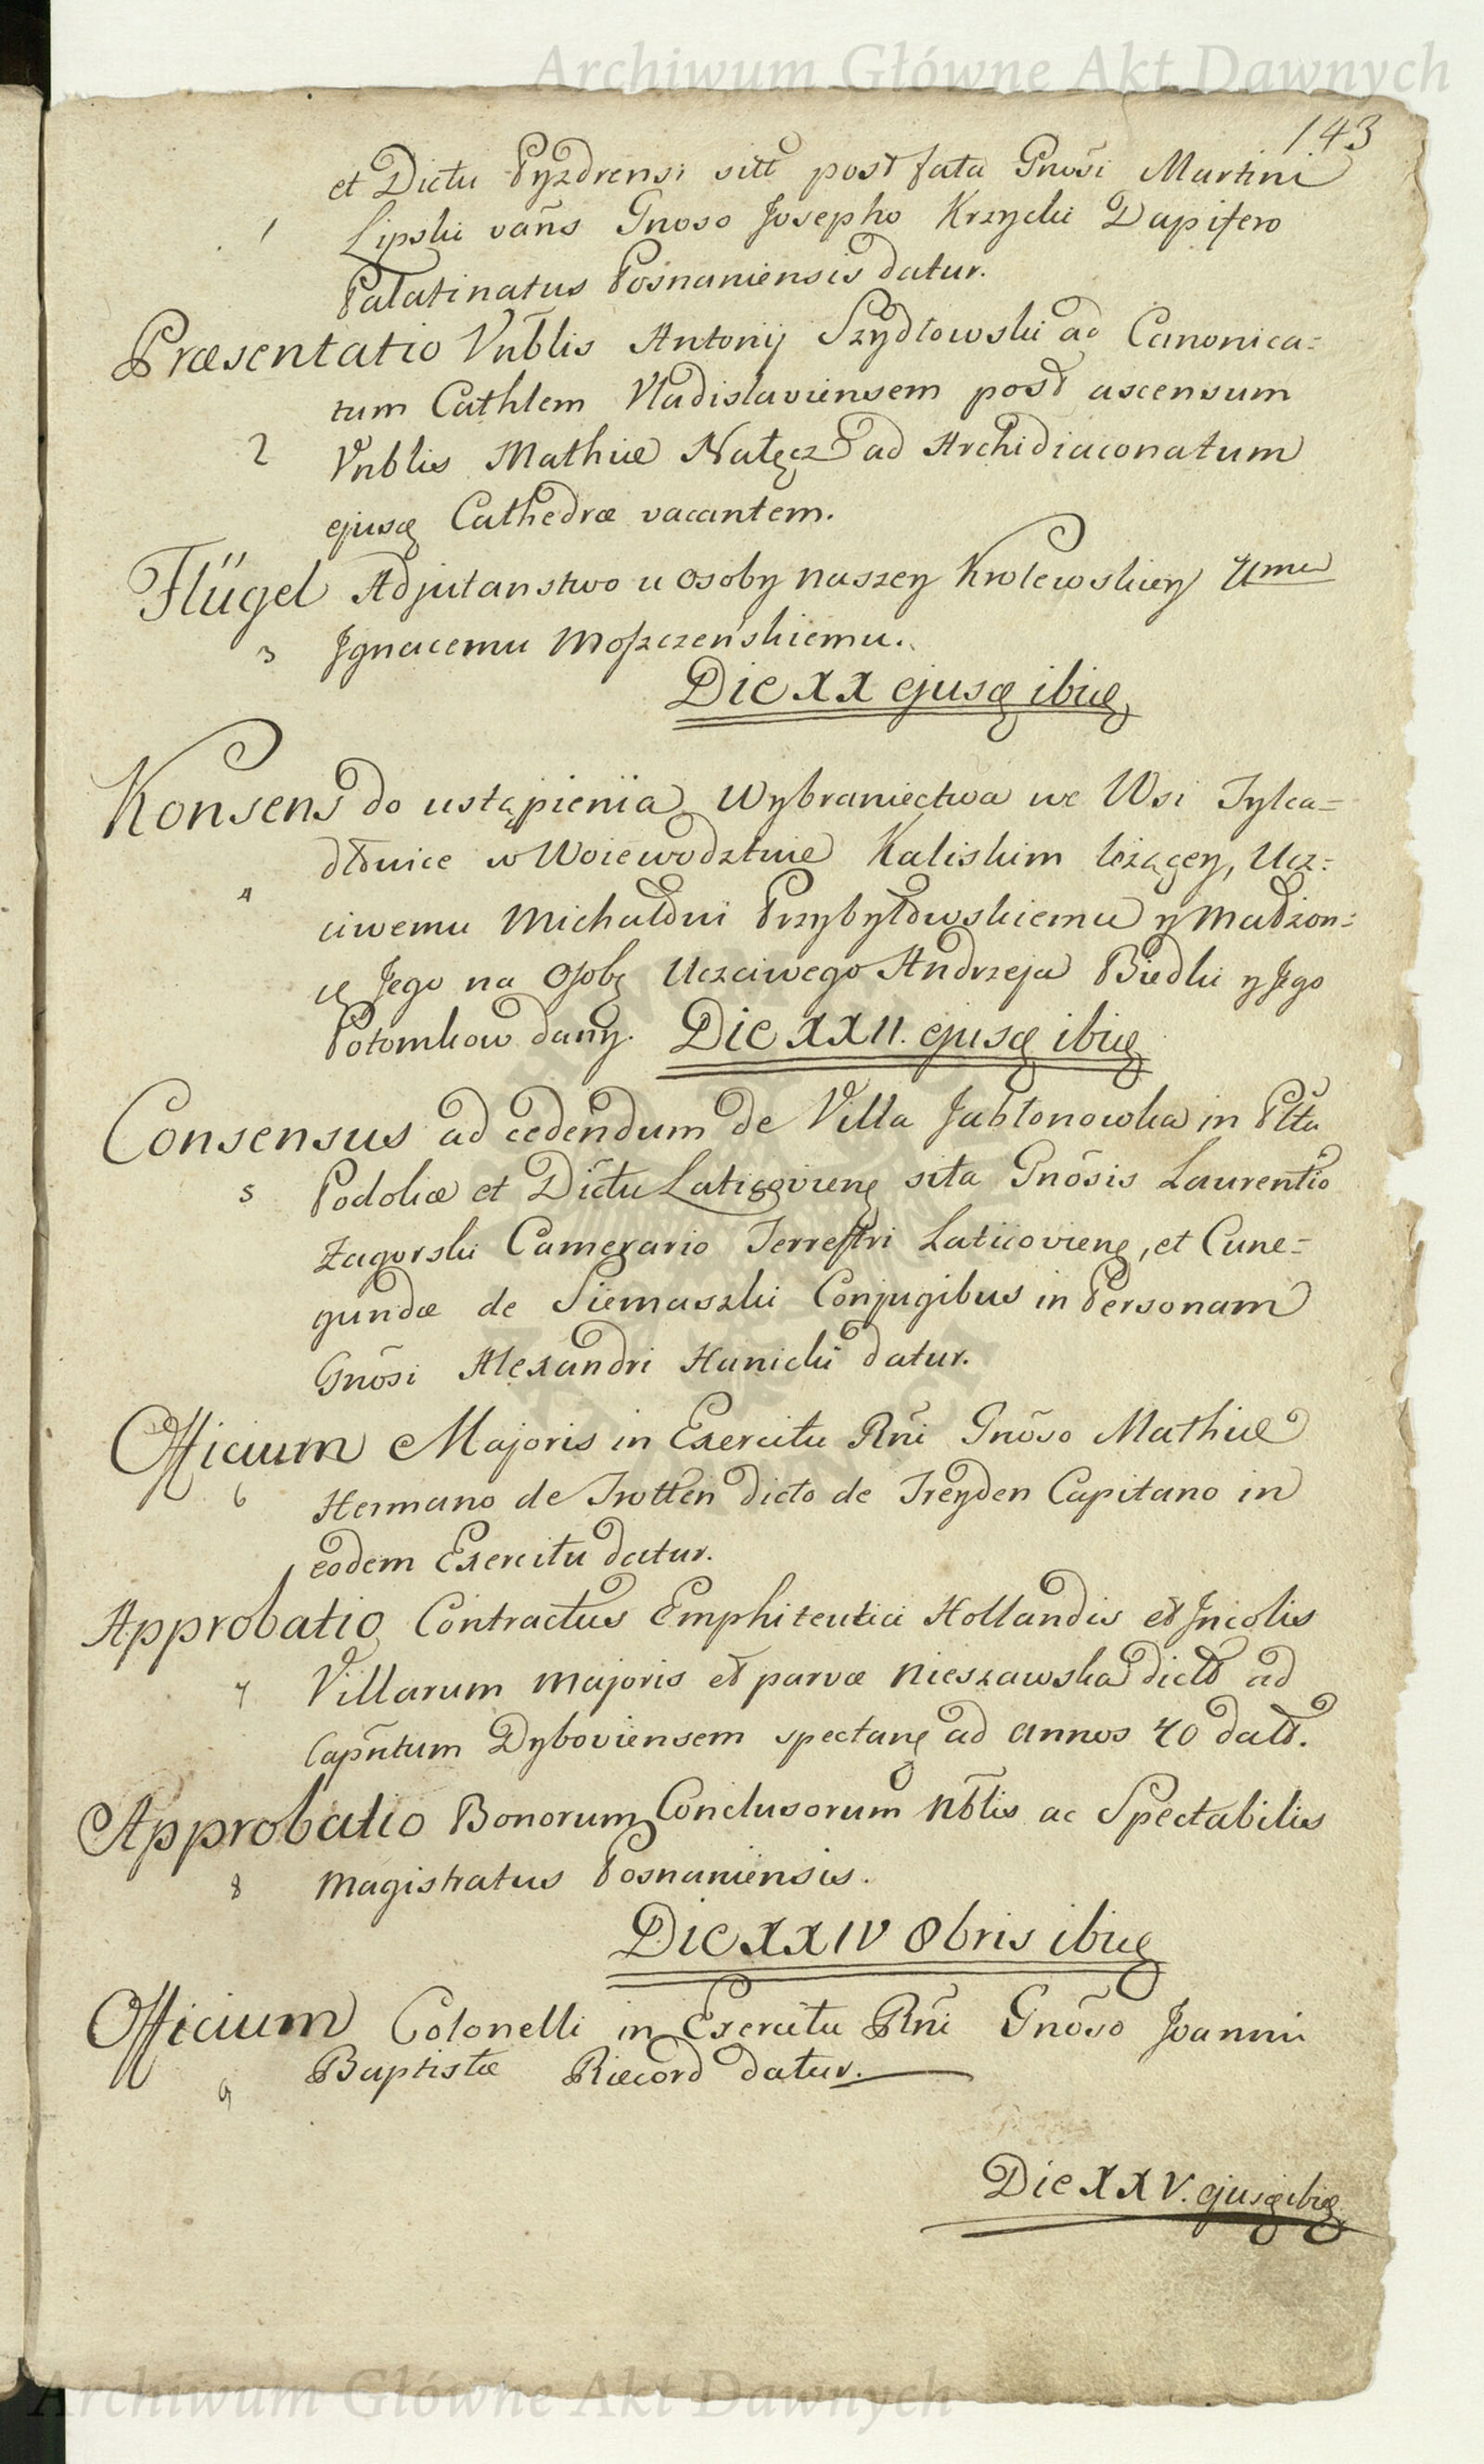 Archiwum Główne Akt Dawnych
143
et Dictu Pyzdrensi sitt post fata Gnosi Martini
1 Lipski vañs Gnoso Josepho Krzycki Dapifero
Palatinatus Posnaniensis datur.
Præsentatio Vnblis Antonij Szydłowski ad Canonica=
tum Cathlem Vladislaviensem post ascensum
2 Vnblis Mathiæ Nałęcz ad Archidiaconatum
ejusq Cathedræ vacantem.
Flügel Adjutanstwo u Osoby naszey Krolewskiey Urmu
3 Jgnacemu Moszczeńskiemu.
Die XX ejusq ibiq
Konsens do ustąpienia Wybraniectwa we Wsi Tylca=
dłowice w Woiewodztwie Kaliskim leżącey, Ucz=
4 ciwemu Michałowi Przybyłowskiemu y Małżon=
ce Jego na Osobę Uczciwego Andrzeja Biedki y Jego
Potomkow dany. Die XXII. ejusq ibiq
Consensus ad cedendum de Villa Jabłonowka in Pltu
5 Podoliæ et Dictu Laticovienq sita Gnõsis Laurentio
Zagorski Camerario Terrestri Laticovienq, et Cune=
gundæ de Siemaszki Conjugibus in Personam
Gnõsi Alexandri Hanicki datur.
Officium Majoris in Exercitu Rñi Gnõso Mathiæ
6 Hermano de Trotten dicto de Treyden Capitano in
eodem Exercitu datur.
Approbatio Contractus Emphiteutici Hollandis et Jncolis
7 Villarum Majoris et parvæ Nieszawska dictt ad
Capñtum Dyboviensem spectanq ad annos 40 datt.
Approbatio Bonorum Conclusorum Nblis ac Spectabilis
8 Magistratus Posnaniensis.
Die XXIV 8bris ibiq
Officium Colonelli in Exercitu Rñi Gnõso Joanni
9 Baptistæ Riecord datur.
Die XXV. ejusq ibiq
Archiwum Główne Akt Dawnych